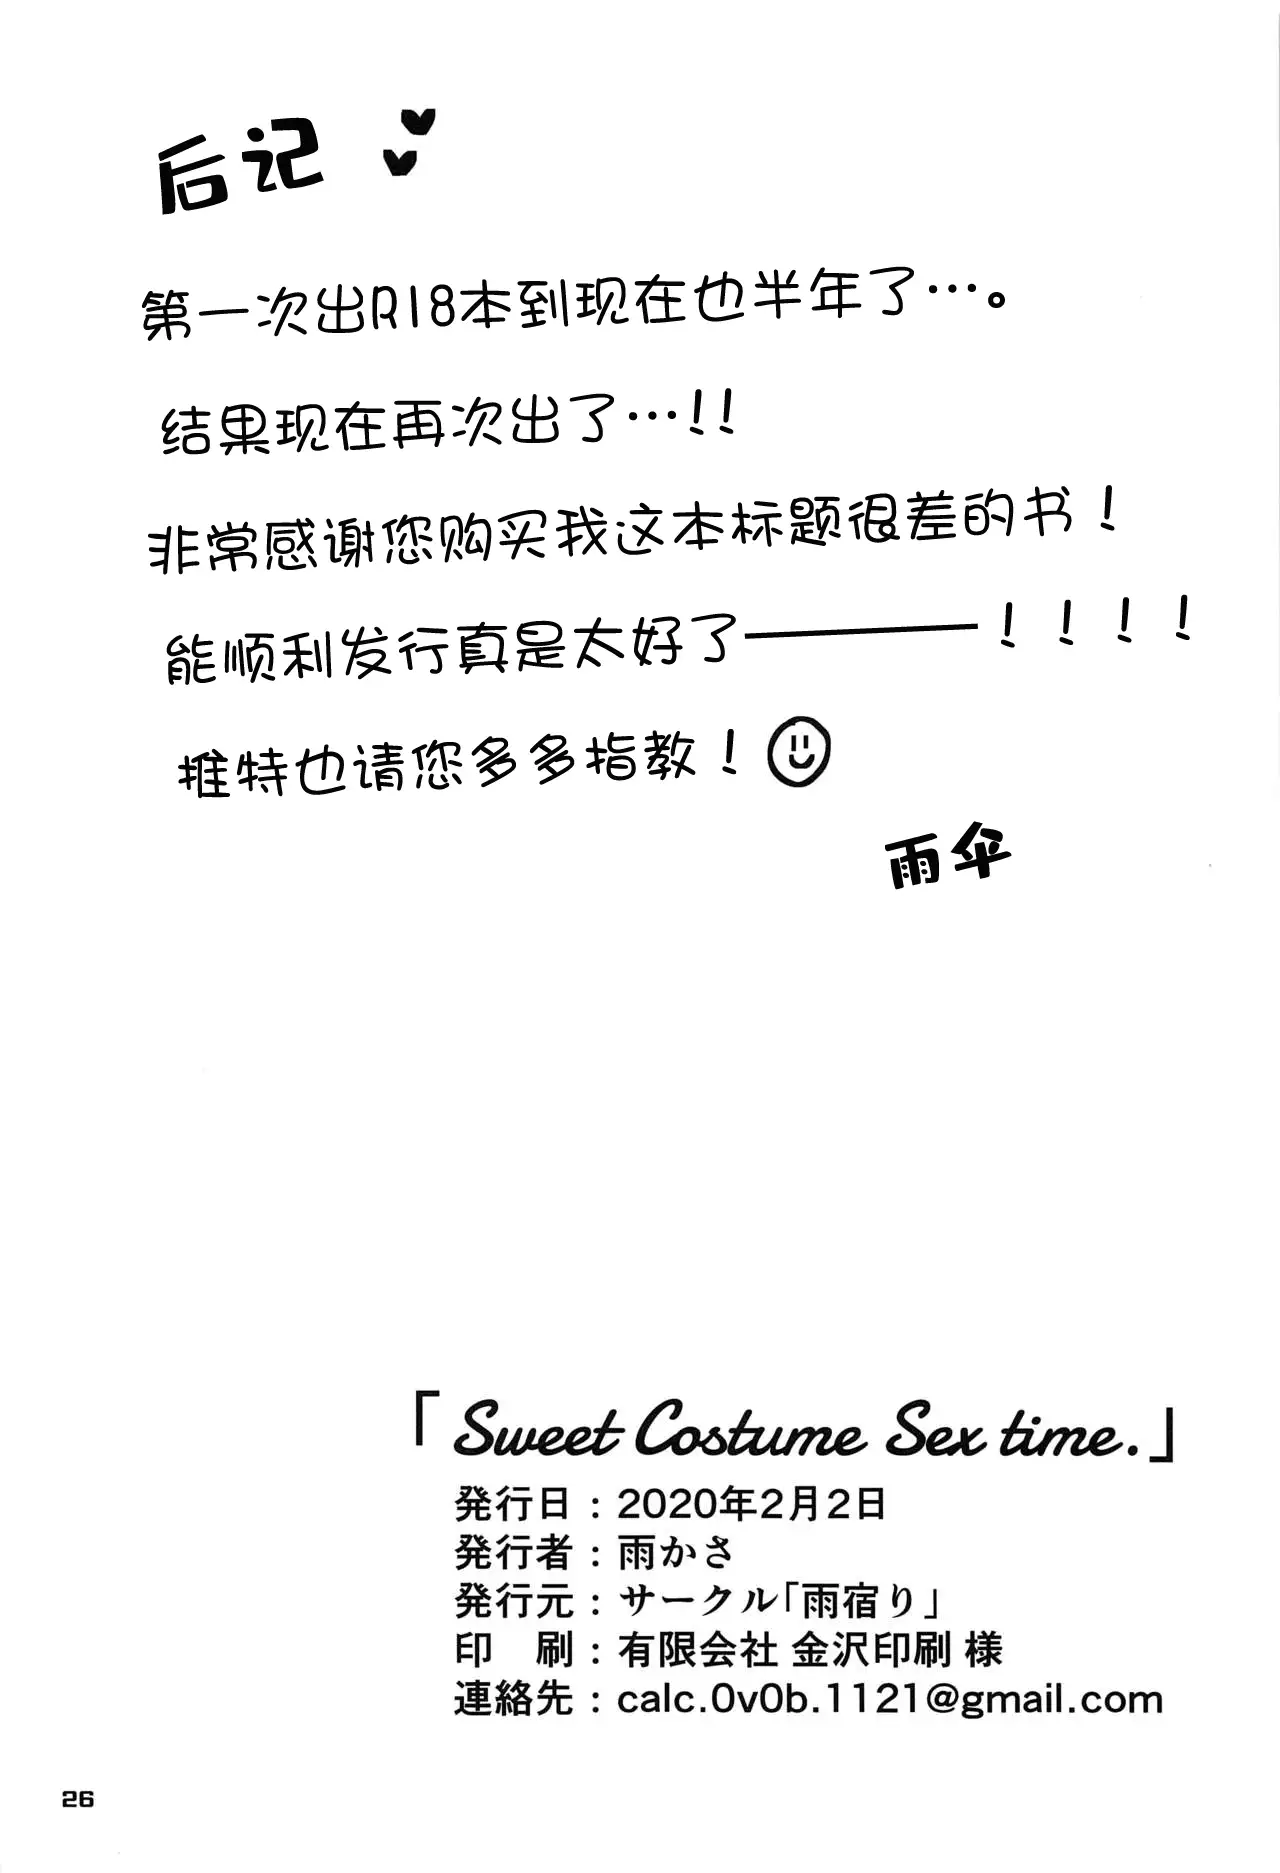 后记
第一次出R18本到现在也半年了…。
结果现在再次出了…!!
非常感谢您购买我这本标题很差的书！
能顺利发行真是太好了————！！！！
推特也请您多多指教！
雨伞
「Sweet Costume Sex time.」
発行日：2020年2月2日
発行者：雨かさ
発行元：サークル「雨宿り」
印　刷：有限会社 金沢印刷 様
連絡先：calc.0v0b.1121@gmail.com
26